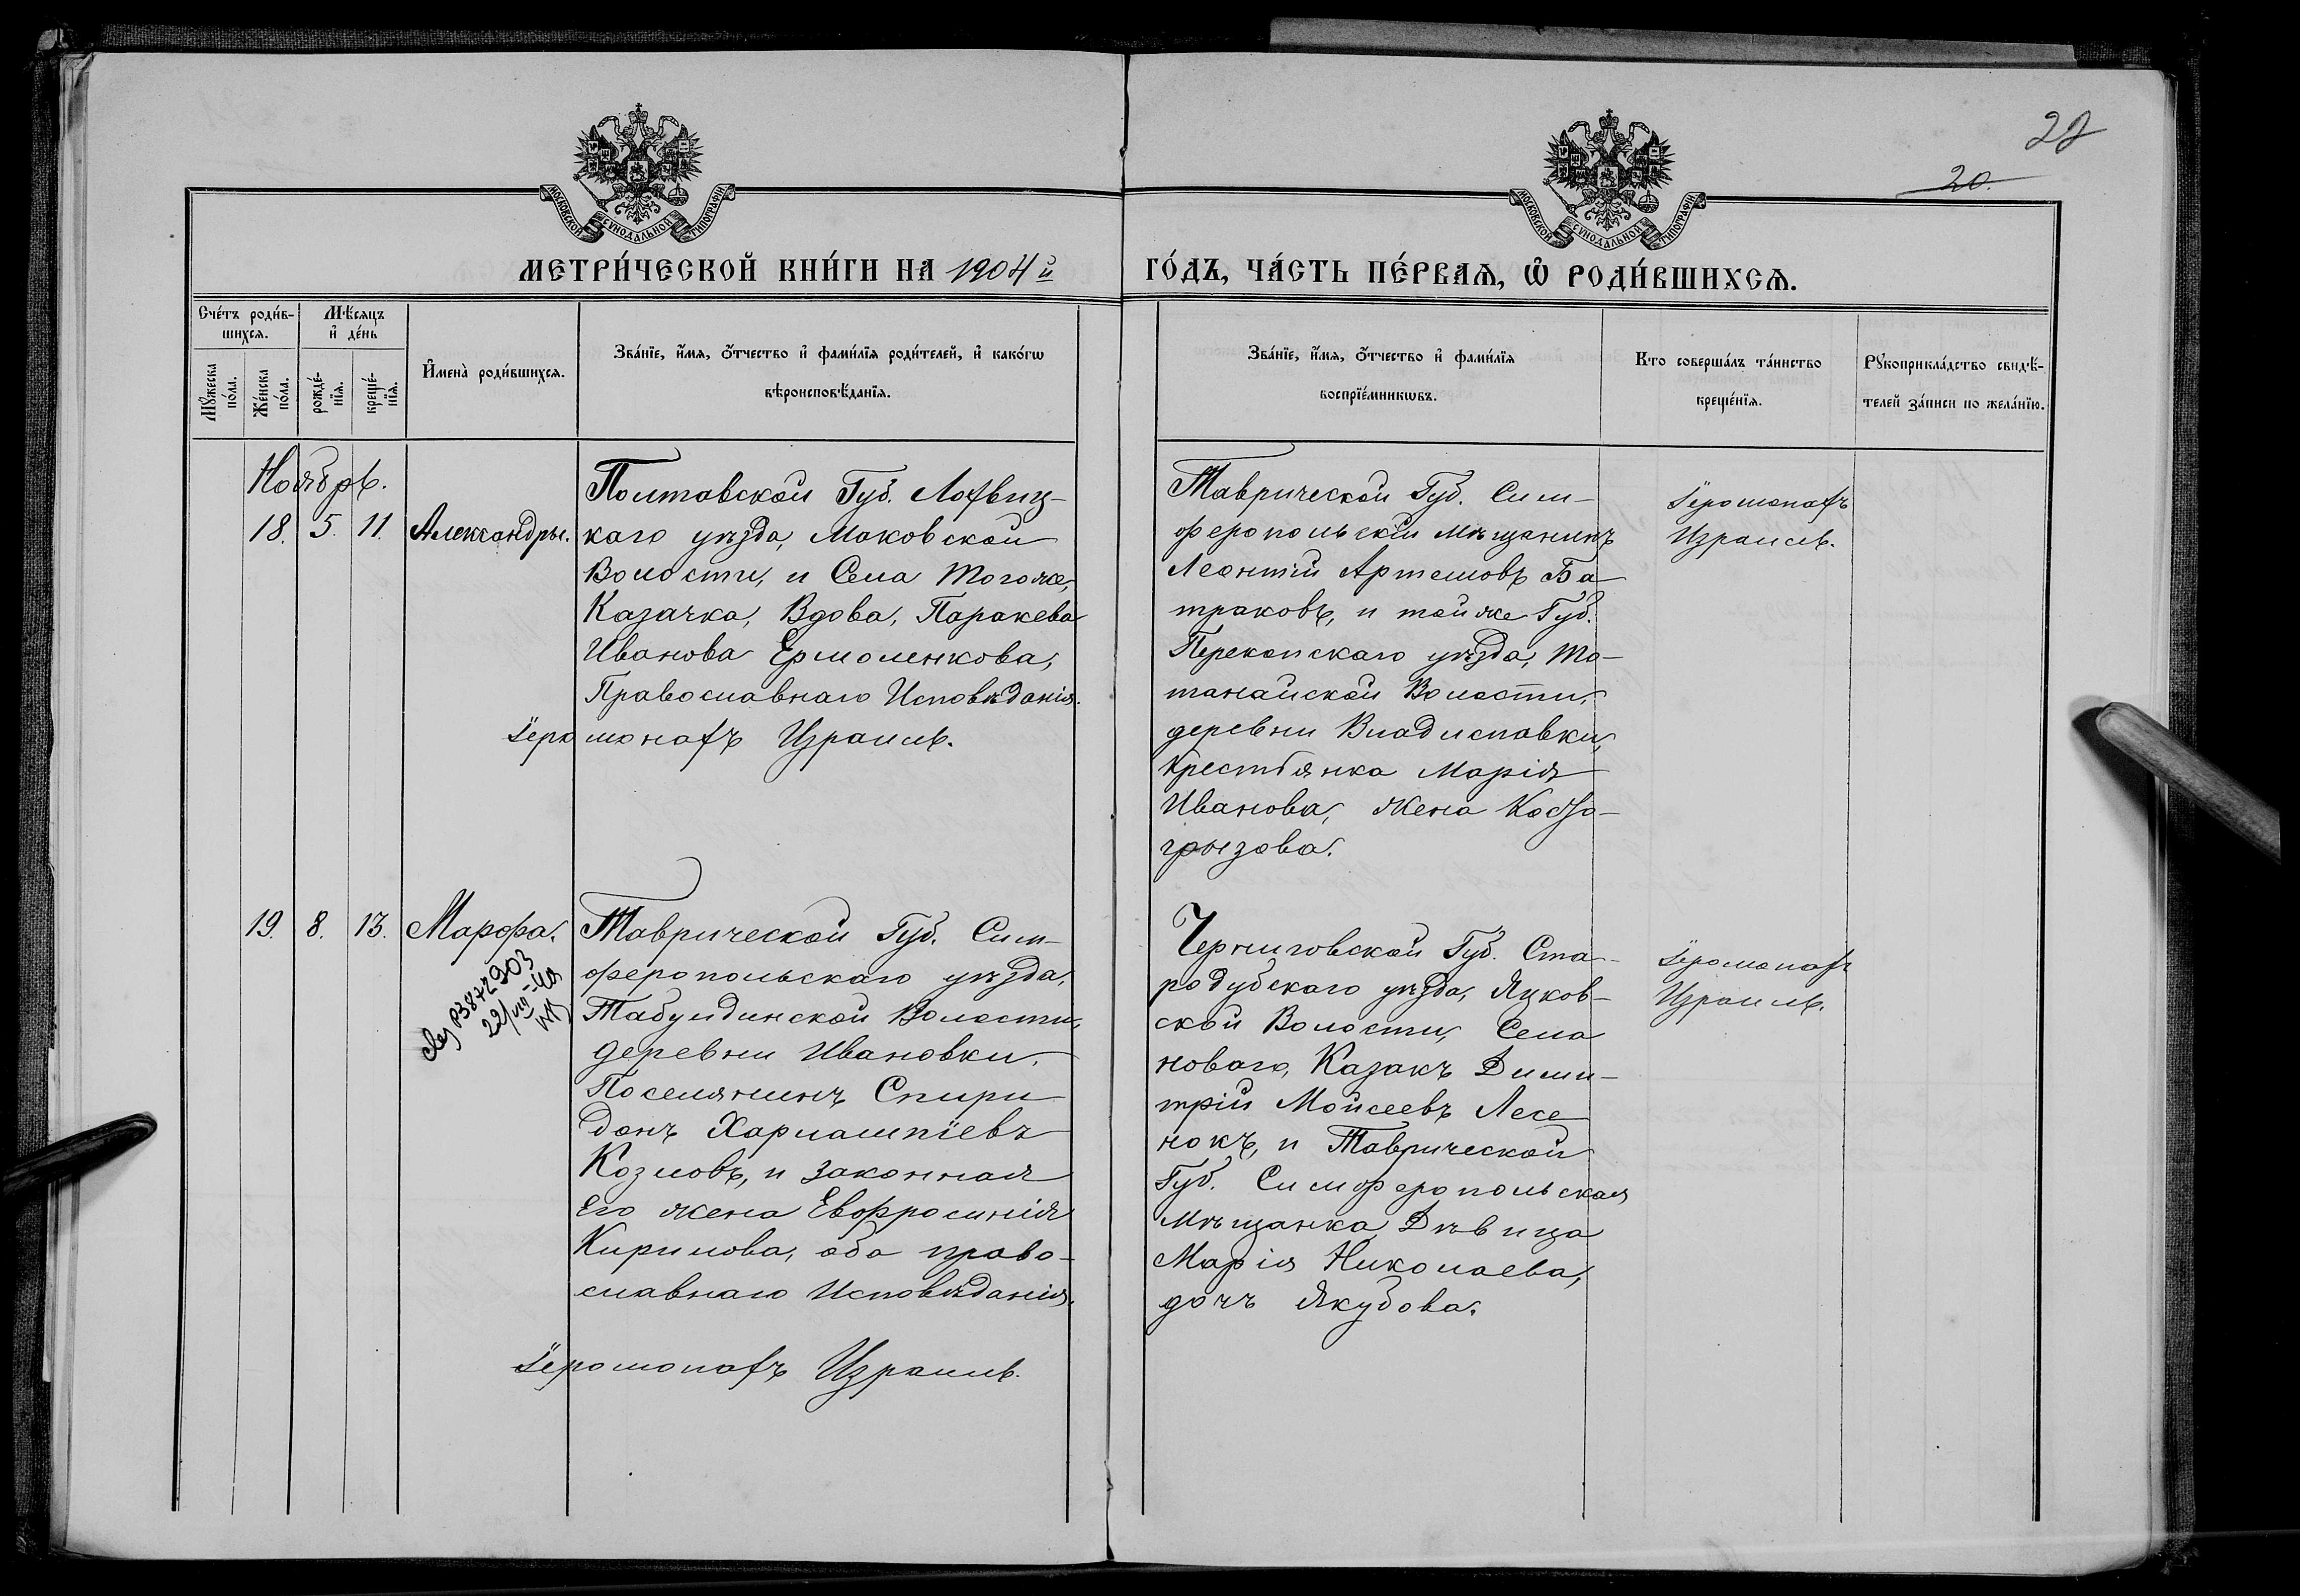 28
20.
МОСКОВСКОЙ СУНОДАЛЬНОЙ ТИПОГРАФІИ
МОСКОВСКОЙ СУНОДАЛЬНОЙ ТИПОГРАФІИ
МЕТРИ́ЧЕСКОЙ КНИ́ГИ НА 1904й
ГО́ДЪ, ЧА́СТЬ ПЕ́РВАѦ, Ѽ РОДИ́ВШИХСѦ.
Сче́тъ роди́в-
шихсѧ.
Мѣ́сѧцъ
и҆ де́нь
Мꙋ́жеска
по́ла.
Же́нска
по́ла.
рожде́-
нїѧ.
креще́-
нїѧ.
И҆мена̀ роди́вшихсѧ.
Зва́нїе, и҆́мѧ, ѻ҆́тчество и҆ фами́лїѧ роди́телей, и҆ како́гѡ
вѣроисповѣ́данїѧ.
Зва́нїе, и҆́мѧ, ѻ҆́тчество и҆ фами́лїѧ
воспрїе́мникѡвъ.
Кто соверша́лъ та́инство
креще́нїѧ.
Рꙋкоприкла́дство свидѣ́-
телей за́писи по жела́нїю.
Ноябрь.
18. 5. 11. Александры.
Полтавской Губ. Лохвиц-
каго уѣзда, Маковской
Волости, и Села тогоже,
Казачка, Вдова, Паракева
Иванова Ермоленкова,
Православнаго Исповѣданія.
Іеромонахъ Израиль.
Таврической Губ. Сим-
феропольскій мѣщанинъ
Леонтій Артемовъ Ба-
траковъ, и тойже Губ.
Перекопскаго уѣзда, То-
танайской Волости,
деревни Владиславки,
крестьянка Марія
Иванова, жена Косто-
грызова.
Іеромонахъ
Израиль.
19. 8. 13. Марѳа.
Таврической Губ. Сим-
феропольскаго уѣзда,
Табулдинской Волости,
деревни Ивановки,
Поселянинъ Спири
донъ Харлампіевъ
Козловъ, и законная
Его жена Евфросинія
Кирилова, оба право-
славнаго Исповѣданія.
Іеромонахъ Израиль.
Черниговской Губ. Ста-
родубскаго уѣзда, Яцков-
ской Волости, Села
новаго, Казакъ Дими-
трій Мойсеевъ Лесе
нокъ, и Таврической
Губ. Симферопольская
мѣщанка Дѣвица
Марія Николаева,
дочъ Якубова.
Іеромонахъ
Израиль.